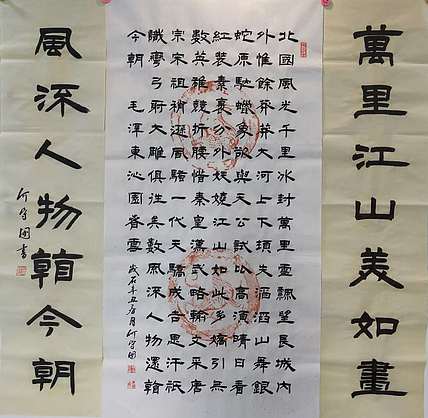 萬里江山美如畫
北國風光千里冰封萬里雪飄望長城內
外惟餘莽莽大河上下頓失滔滔山舞銀
蛇原馳蠟象欲與天公試比高須晴日看
紅裝素裹分外妖嬈江山如此多嬌引無
數英雄競折腰惜秦皇漢武略輸文采唐
宗宋祖稍遜風騷一代天驕成吉思汗祇
識彎弓射大雕俱往矣數風流人物還看
今朝 毛澤東沁園春雪
歲在辛丑春月
風流人物看今朝